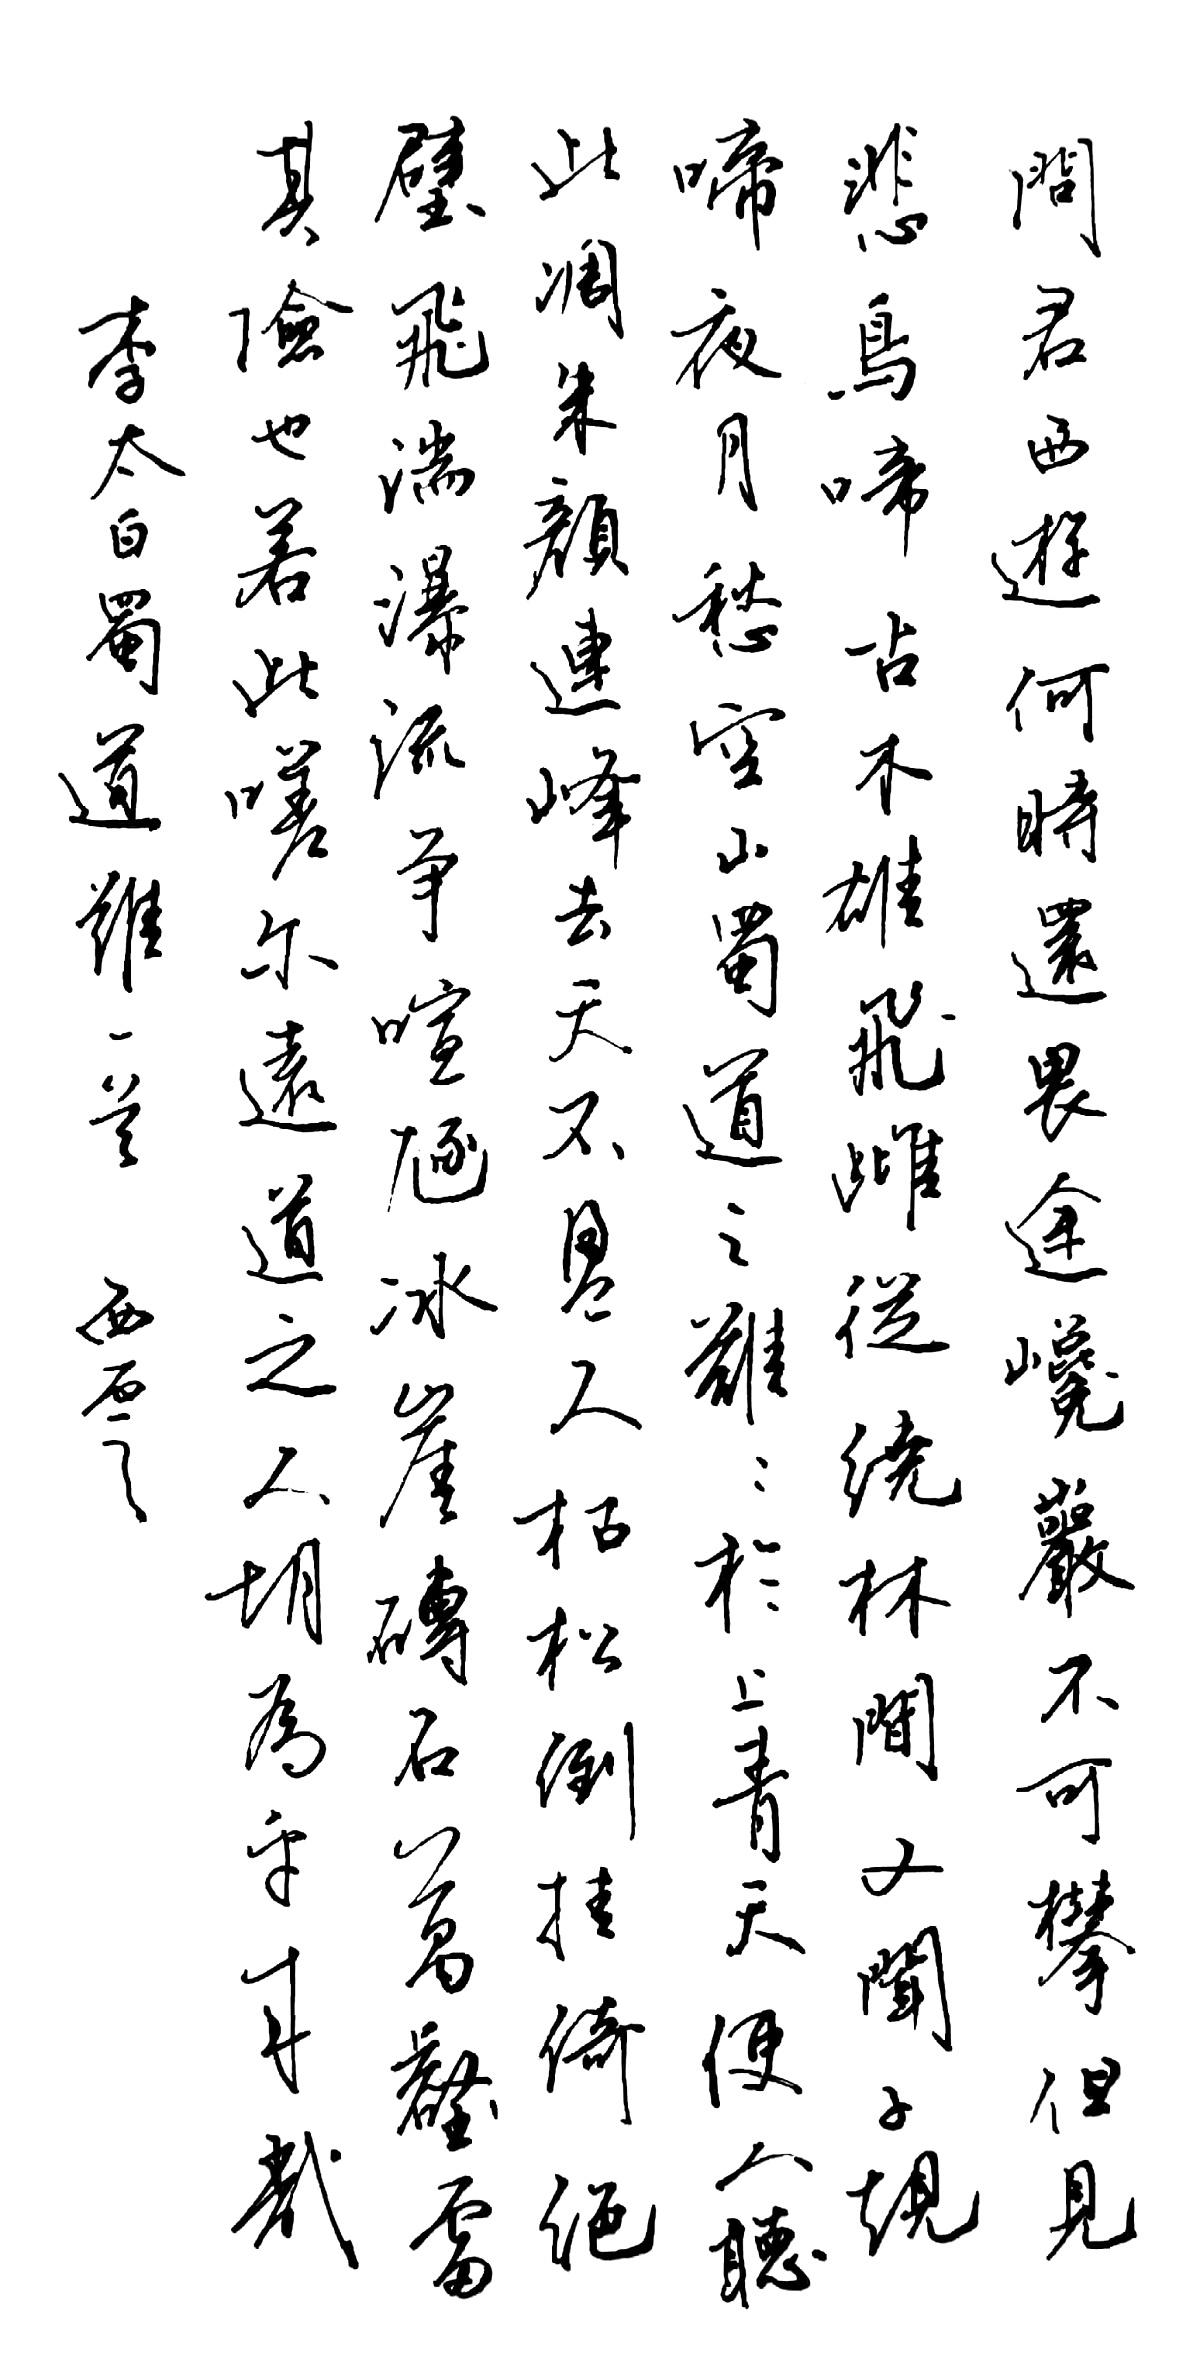 問君西遊何時還畏途巉巖不可攀但見
悲鳥啼古木雄飛雌從繞林間又聞子規
啼夜月愁空山蜀道之難〻於上青天使人聽
此凋朱顏連峰去天不盈尺枯松倒挂倚絕
壁飛湍瀑流爭喧豗冰崖磚石萬壑雷
其險也若此嗟尔遠道之人胡為乎来哉
李太白蜀道難一首 西